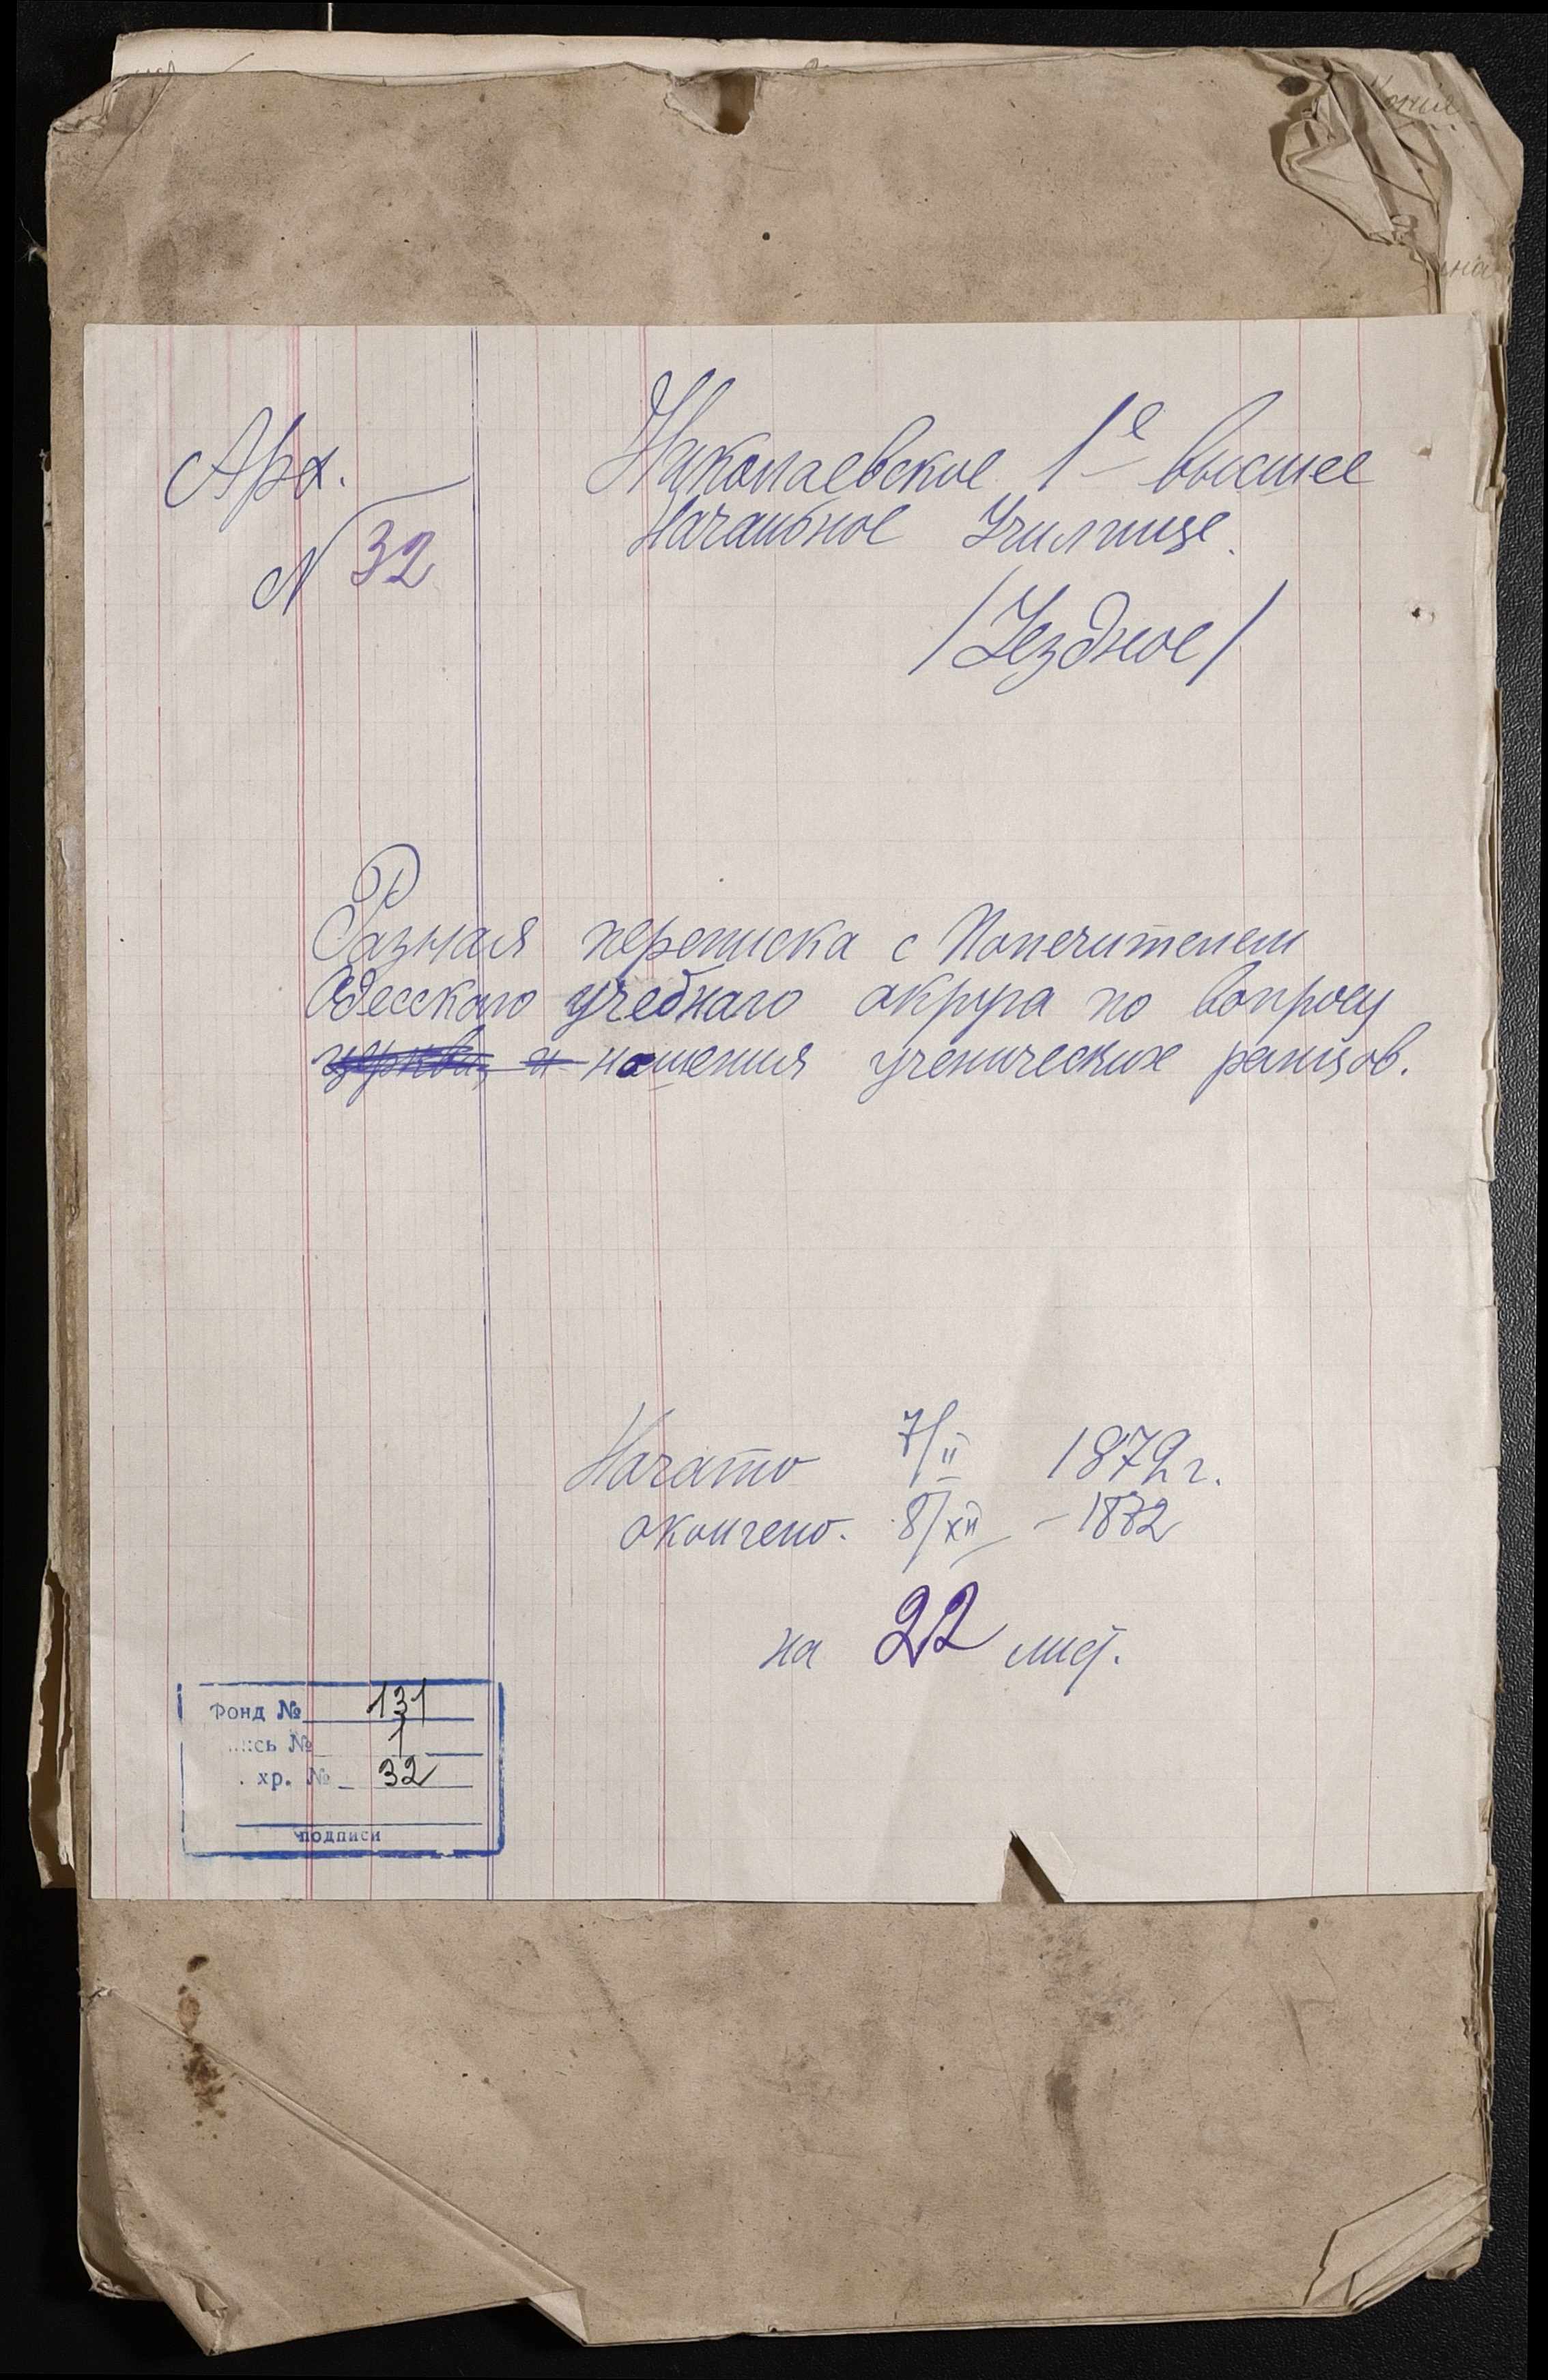 Арх.
N 32
Николаевское 1е высшее
Начальное Училище.
/Уездное/
Разная переписка с Попечителем
Одесского учебнаго округа по вопросу
ношения ученических ранцов.
Начато 7/II 1872 г.
окончено. 8/XII - 1872
на 22 лист.
Фонд № 131
ись № 1
. хр. № 32
подписи